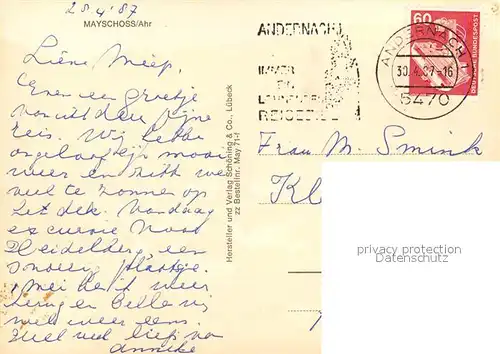 28 4 '87
MAYSCHOSS/Ahr
Liene Miep,
Even een groetje
vanuit den Rijn
reis. Wij hebben
ongelooflijk mooi
weer en zitten
veel te zonnen op
het dek. Vandaag
excursie naar
Heidelberg een
plaatje.
weer
terug en bellen wij
wel weer eens.
Heel veel liefs van
Anneke
Hersteller und Verlag Schöning & Co., Lübeck
zz Bestellnr. May 71-f
ANDERNACH
IMMER
REISEZIEL
60
DEUTSCHE BUNDESPOST
ANDERNACH 1
30.4.87-16
5470
Frau M. Smink
Kl
privacy protection
Datenschutz